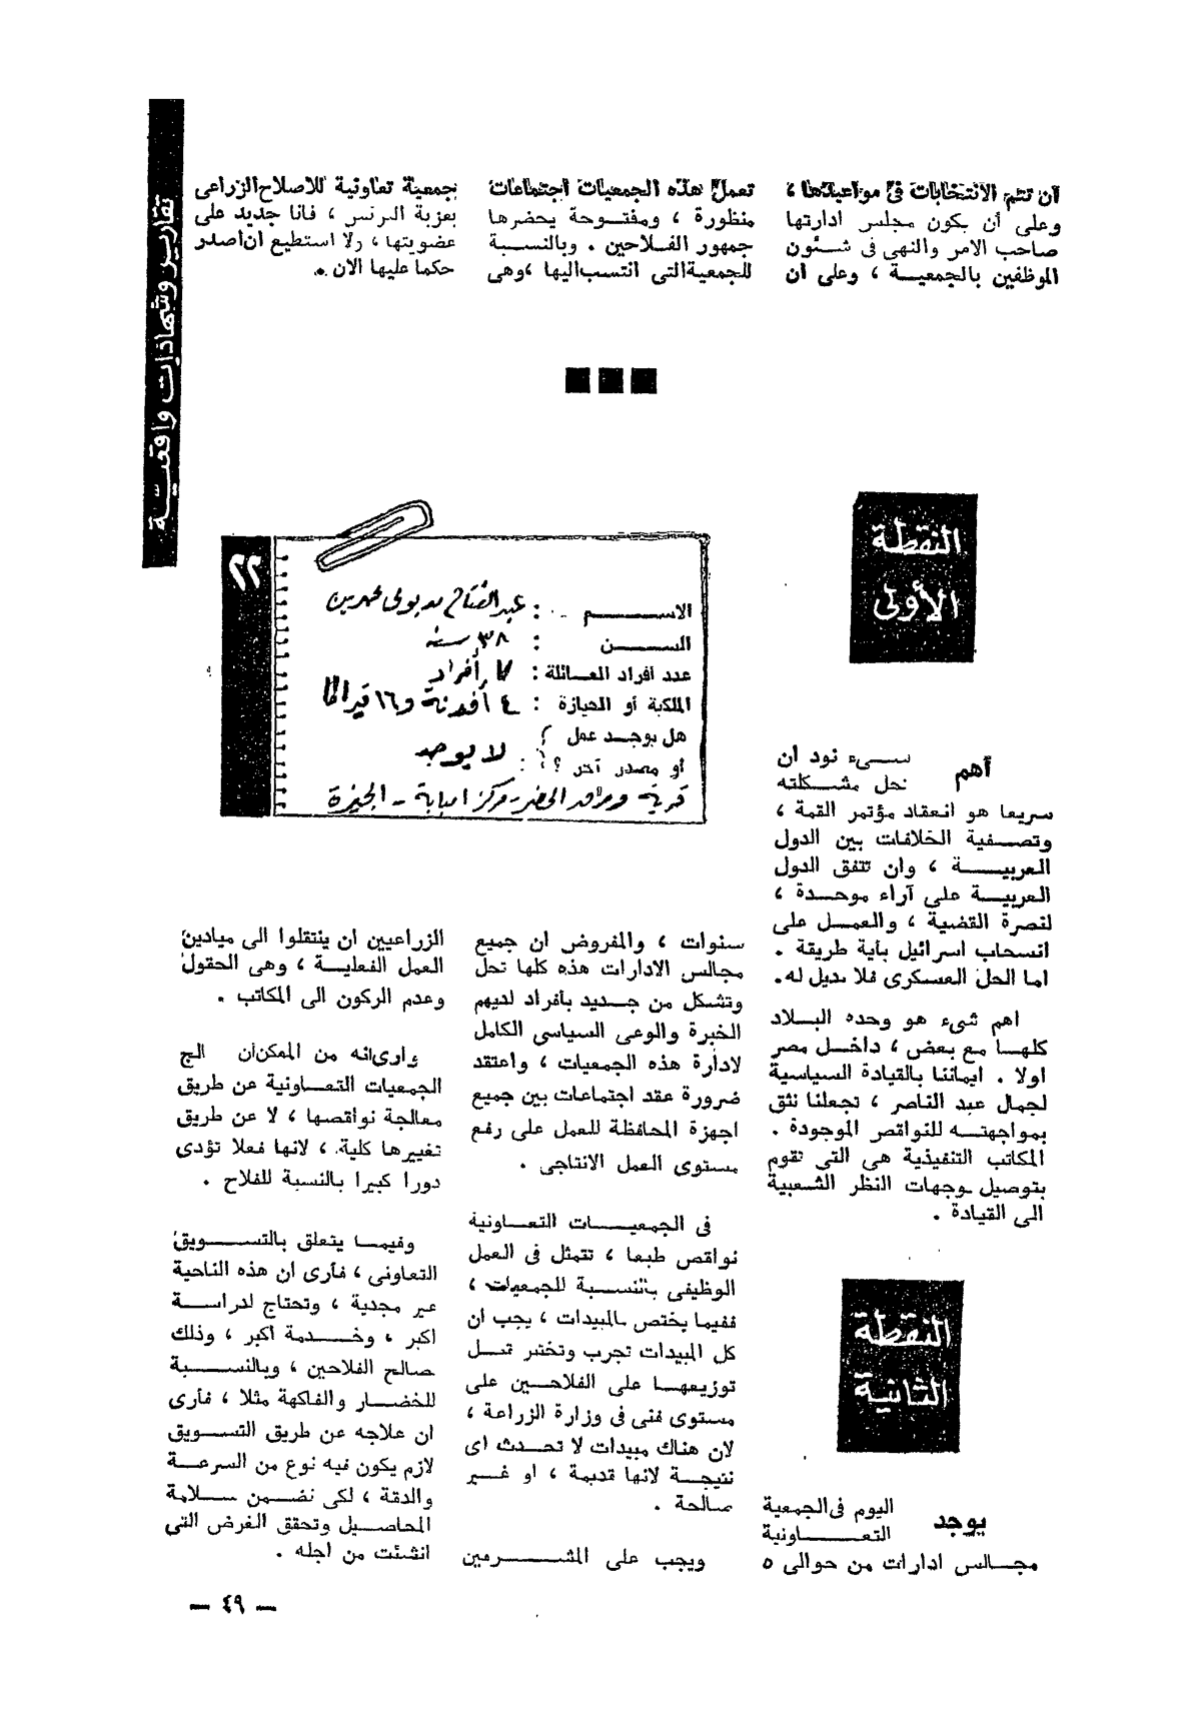 تقارير وشهادات واقعية
أن تتم الانتخابات فى مواعيدها ،
وعلى أن يكون مجلس ادارتها
صاحب الامر والنهى فى شئون
الموظفين بالجمعية ، وعلى ان
تعمل هذه الجمعيات اجتماعات
منظورة ، ومفتوحة يحضرها
جمهور الفلاحين . وبالنسبة
للجمعية التى انتسب اليها ، وهى
جمعية تعاونية للاصلاح الزراعى
بعزبة البرنس ، فانا جديد على
عضويتها ، ولا استطيع ان اصدر
حكما عليها الان .
٢٢
الاسم : عبد الفتاح مدبولى
السن : ٣٨ سنة
عدد افراد العائلة : ٧ أفراد
الملكية أو الحيازة : ٤ أفدنة و١٦ قيراطا
هل يوجد عمل
أو مصدر آخر ؟ : لا يوجد
قرية الحضر - مركز امبابة - الجيزة
النقطة
الأولى
أهم شىء نود ان
نحل مشكلته
سريعا هو انعقاد مؤتمر القمة ،
وتصفية الخلافات بين الدول
العربية ، وان تتفق الدول
العربية على آراء موحدة ،
لنصرة القضية ، والعمل على
انسحاب اسرائيل بأية طريقة .
اما الحل العسكرى فلا بديل له .
اهم شىء هو وحده البلاد
كلها مع بعض ، داخل مصر
اولا . ايماننا بالقيادة السياسية
لجمال عبد الناصر ، تجعلنا نثق
بمواجهته للنواقص الموجودة .
المكاتب التنفيذية هى التى تقوم
بتوصيل وجهات النظر الشعبية
الى القيادة .
النقطة
الثانية
يوجد اليوم فى الجمعية
التعاونية
مجالس ادارات من حوالى ٥
سنوات ، والمفروض ان جميع
مجالس الادارات هذه كلها تحل
وتشكل من جديد بأفراد لديهم
الخبرة والوعى السياسى الكامل
لادارة هذه الجمعيات ، واعتقد
ضرورة عقد اجتماعات بين جميع
اجهزة المحافظة للعمل على رفع
مستوى العمل الانتاجى .
فى الجمعيات التعاونية
نواقص طبعا ، تتمثل فى العمل
الوظيفى بالنسبة للجمعيات ،
ففيما يختص بالمبيدات ، يجب ان
كل المبيدات تجرب وتختبر قبل
توزيعها على الفلاحين على
مستوى فنى فى وزارة الزراعة ،
لان هناك مبيدات لا تحدث اى
نتيجة لانها قديمة ، او غير
صالحة .
ويجب على المشرفين
الزراعيين ان ينتقلوا الى ميادين
العمل الفعلية ، وهى الحقول
وعدم الركون الى المكاتب .
وارى انه من الممكن ان الج
الجمعيات التعاونية عن طريق
معالجة نواقصها ، لا عن طريق
تغييرها كلية ، لانها فعلا تؤدى
دورا كبيرا بالنسبة للفلاح .
وفيما يتعلق بالتسويق
التعاونى ، فأرى ان هذه الناحية
غير مجدية ، وتحتاج لدراسة
اكبر ، وخدمة اكبر ، وذلك
صالح الفلاحين ، وبالنسبة
للخضار والفاكهة مثلا ، فأرى
ان علاجه عن طريق التسويق
لازم يكون فيه نوع من السرعة
والدقة ، لكى نضمن سلامة
المحاصيل وتحقق الغرض التى
انشئت من اجله .
— ٤٩ —